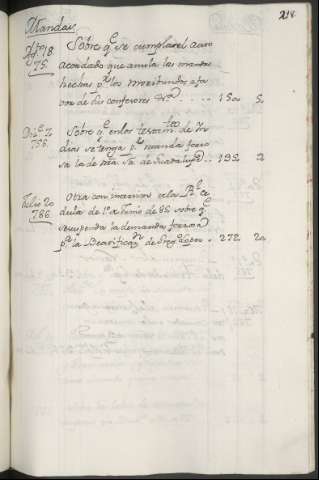 218.
Mandas.
Agto 18 Sobre qe se cumpla el auto
75. acordado que anula las mandas
hechas pr los moribundos a fa
vor de sus confesores &a . . . . 150 5
Dice 2 Sobre qe en los testamtos de In
756. dias se tenga pr manda forzo
sa la de Na Sa de Guadalupe . . 195 2
Julio 20 Otra con insercion de la Rl Ce
786. dula de 1o de Junio de 85 sobre qe
se suspenda la demanda forzosa
pa la Beatificacn de Gregorio Lopez . 272 20